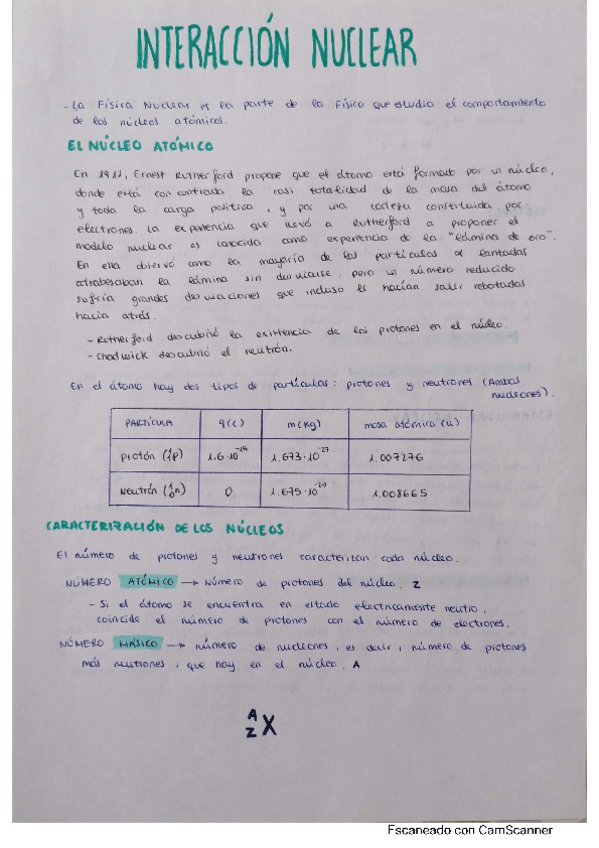 INTERACCIÓN NUCLEAR
- La Física Nuclear es la parte de la Física que estudia el comportamiento
de los núcleos atómicos.
EL NÚCLEO ATÓMICO
En 1911, Ernest Rutherford propone que el átomo está formado por un núcleo,
donde está concentrada la casi totalidad de la masa del átomo
y toda la carga positiva, y por una corteza constituida por
electrones. La experiencia que llevó a Rutherford a proponer el
modelo nuclear es conocida como experiencia de la "lámina de oro".
En ella observó como la mayoría de las partículas α lanzadas
atrabesaban la lámina sin desviarse, pero un número reducido
sufría grandes desviaciones que incluso les hacían salir rebotadas
hacia atrás.
- Rutherford descubrió la existencia de los protones en el núcleo.
- Chadwick descubrió el neutrón.
En el átomo hay dos tipos de partículas: protones y neutrones (Ambos
nucleones).
PARTÍCULA q(C) m(Kg) masa atómica (u)
Protón (¹₁p) 1.6·10 1.673·10⁻²⁷ 1.007276
Neutrón (¹₀n) 0 1.675·10⁻²⁷ 1.008665
CARACTERIZACIÓN DE LOS NÚCLEOS
El número de protones y neutrones caracterizan cada núcleo.
NÚMERO ATÓMICO → Número de protones del núcleo. Z
- Si el átomo se encuentra en estado eléctricamente neutro,
coincide el número de protones con el número de electrones.
NÚMERO MÁSICO → número de nucleones, es decir, número de protones
más neutrones, que hay en el núcleo. A
A
Z X
Escaneado con CamScanner